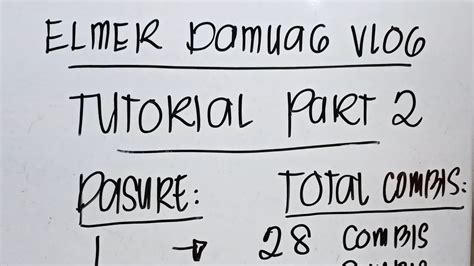 ELMER DAMUAG VLOG
TUTORIAL PART 2
PASURE: TOTAL COMBIS:
1 → 28 COMBIS